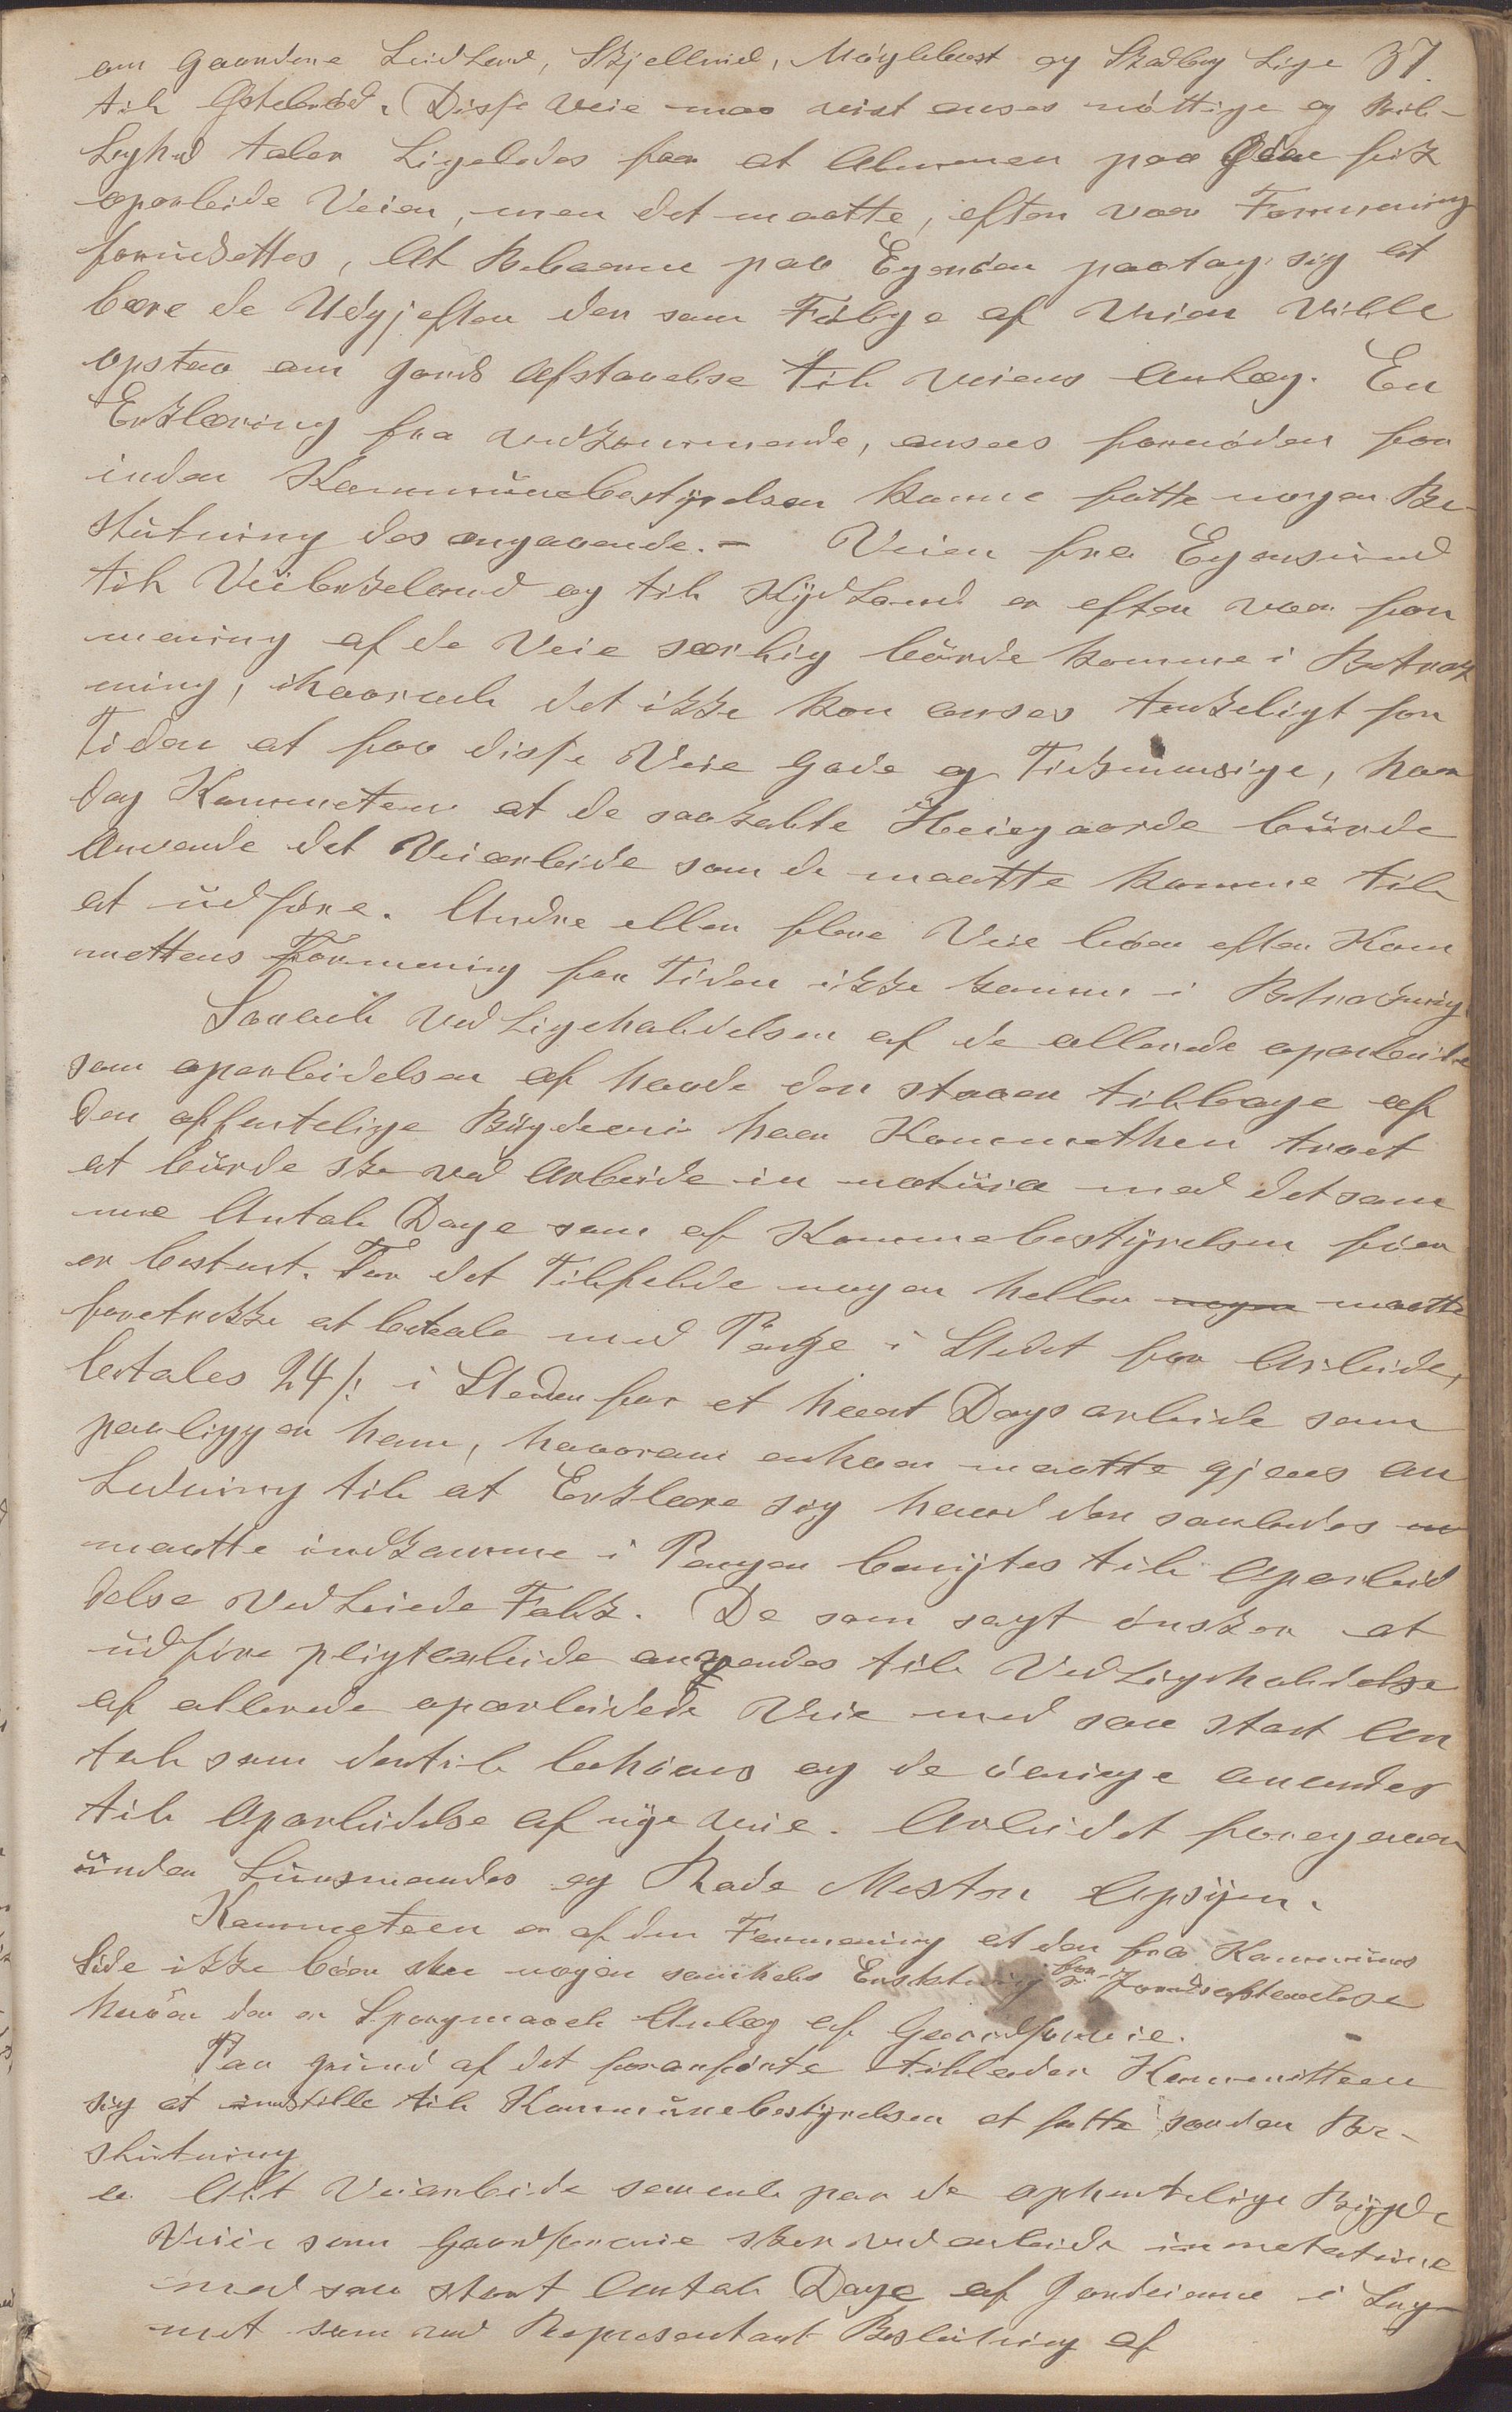 om gaardene Leidland, Skjellvied, Møgleboest og Skadberg Lige 37.
til Gstebrød. Disse Veie maa vist anses nøttige og Bil-
lighed taler Ligeledes for at Almuen paa Øen fik
oparbeide Veien, men det maatte, efter vaar Formening
forudsettes, At Beboerne paa Egerøen paatag sig at
bære de Udgjefter der som Følge af Veien Vilde
opstaa om Jords Afstaaelse til Veiens Anlæg. En
Erklæring fra vedkommende, ansees fornøden for
inden Kommunebestyrelsen kunne fatte nogen Be-
slutning des angaaende. - Veien fra Egersund
til Veiberkeland og til Kydland er efter vaar for
mening af de Veie særlig burde komme i Betrak
ning, ihvorvel det ikke kan anses tenkeligt for
Tiden at faa disse Veie gode og Tidsmæsige, har
dog Kommeteen at de saakalte Heiegaarde burde
Anvende det Veiarbeide som de maatte komme til
at udføre. Andre eller flere Veie bør efter Kom
mettens Formening for Tiden ikke komme i Betrakning.
Saavel Vedligeholdelsen af de allerede oparbeidte
som oparbeidelsen af hvad der staaer tilbage af
den offentelige Bygdevei har Kommethen troet
at burde ske ved Arbeide in natura med det sam
me Antal Dage som af Kommebestyrelsen før
er bestemt. For det Tilfelde nogen heller maatte
foretrekke at betale med Penge i Stedet for Arbeide,
betales 24 s. i Steden for et hvert Dags arbeide som
paaligger ham, hvorom enhver maatte gjives an
Ledning til at Erklære sig hvad der saaledes
maatte indkomme i Penger benyttes til Oparbeid
delse ved Leiede Folk. De som sagt ønsker at
udføre pligtarbeide anvendes til Vedligeholdelse
af allerede oparbeidede Veie med saa stort An
tal som dertil behøves og de øvrige anvendes
til Oparbeidelse af nye Veie. Arbeidet foregaaer
under Lensmandes og Rode Mestere Opsyn.
Kommeteen er af den Formening at der fra Kommunes
Side ikke bør ske nogen somhelst Erstatning for Jordsafstaaelse
hvor der er Spørgmaal Anlæg af Gaardsveie.
Paa grund af det foranførte tillader Kommitteen
sig at indstille til Kommunebestyrelsen at fatte saadan Be-
slutning
a Alt Veiarbeide saavel paa de ophentelige Bygde
Veie som Gaardsveie sker ved arbeide in natura
med saa stort Antal Dage af Jordeierne i Sog-
net som ved Representant Beslutning af